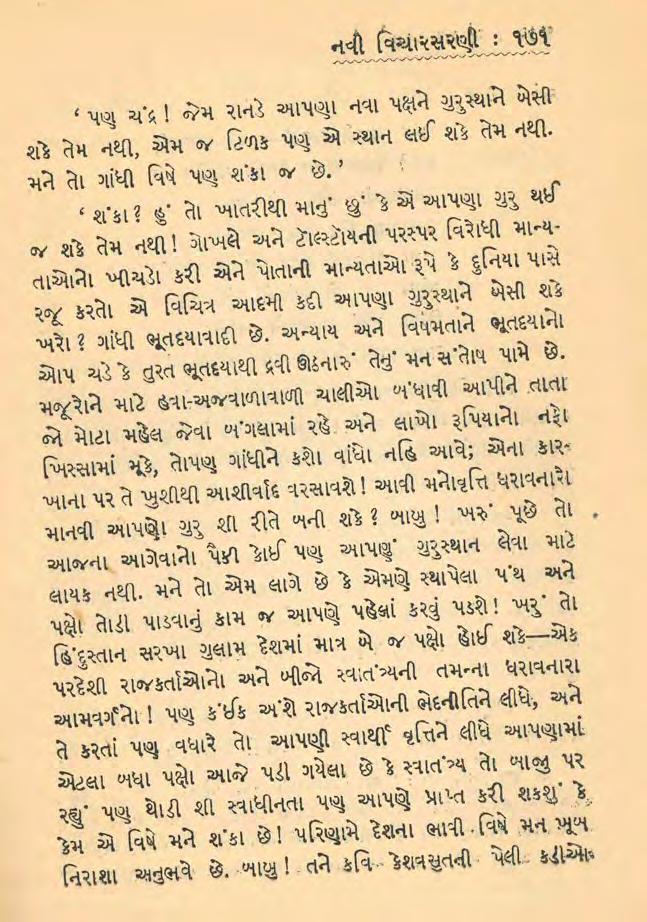 નવી વિચારસરણી : ૧૭૧
‘ પણ ચંદ્ર ! જેમ રાનડે આપણા નવા પક્ષને ગુરુસ્થાને બેસી
શકે તેમ નથી, એમ જ ટિળક પણ એ સ્થાન લઈ શકે તેમ નથી.
મને તો ગાંધી વિષે પણ શંકા જ છે.’
‘ શંકા ? હું તો ખાતરીથી માનું છું કે એ આપણા ગુરુ થઈ
જ શકે તેમ નથી ! ગોખલે અને ટૉલ્સ્ટૉયની પરસ્પર વિરોધી માન્ય-
તાઓનો ખીચડો કરી એને પોતાની માન્યતાઓ રૂપે કે દુનિયા પાસે
રજૂ કરતો એ વિચિત્ર આદમી કદી આપણા ગુરુસ્થાને બેસી શકે
ખરો ? ગાંધી ભૂતદયાવાદી છે. અન્યાય અને વિષમતાને ભૂતદયાનો
ઓપ ચડે કે તુરત ભૂતદયાથી દ્રવી ઊઠનારું તેનું મન સંતોષ પામે છે.
મજૂરોને માટે હવા-અજવાળાવાળી ચાલીઓ બંધાવી આપીને તાતા
જો મોટા મહેલ જેવા બંગલામાં રહે અને લાખો રૂપિયાનો નફો
ખિસ્સામાં મૂકે, તોપણ ગાંધીને કશો વાંધો નહિ આવે; એના કાર-
ખાના પર તે ખુશીથી આશીર્વાદ વરસાવશે ! આવી મનોવૃત્તિ ધરાવનારો
માનવી આપણો ગુરુ શી રીતે બની શકે ? બાબુ ! ખરું પૂછે તો
આજના આગેવાનો પૈકી કોઈ પણ આપણું ગુરુસ્થાન લેવા માટે
લાયક નથી. મને તો એમ લાગે છે કે એમણે સ્થાપેલા પંથ અને
પક્ષો તોડી પાડવાનું કામ જ આપણે પહેલાં કરવું પડશે ! ખરું તો
હિંદુસ્તાન સરખા ગુલામ દેશમાં માત્ર બે જ પક્ષો હોઈ શકે—એક
પરદેશી રાજકર્તાઓનો અને બીજો સ્વાતંત્ર્યની તમન્ના ધરાવનારા
આમવર્ગનો ! પણ કંઈક અંશે રાજકર્તાઓની ભેદનીતિને લીધે, અને
તે કરતાં પણ વધારે તો આપણી સ્વાર્થી વૃત્તિને લીધે આપણામાં
એટલા બધા પક્ષો આજે પડી ગયેલા છે કે સ્વાતંત્ર્ય તો બાજુ પર
રહ્યું પણ થોડી શી સ્વાધીનતા પણ આપણે પ્રાપ્ત કરી શકશું કે
કેમ એ વિષે મને શંકા છે ! પરિણામે દેશના ભાવી વિષે મન ખૂબ
નિરાશા અનુભવે છે. બાબુ ! તને કવિ કેશવસુતની પેલી કડીઓ